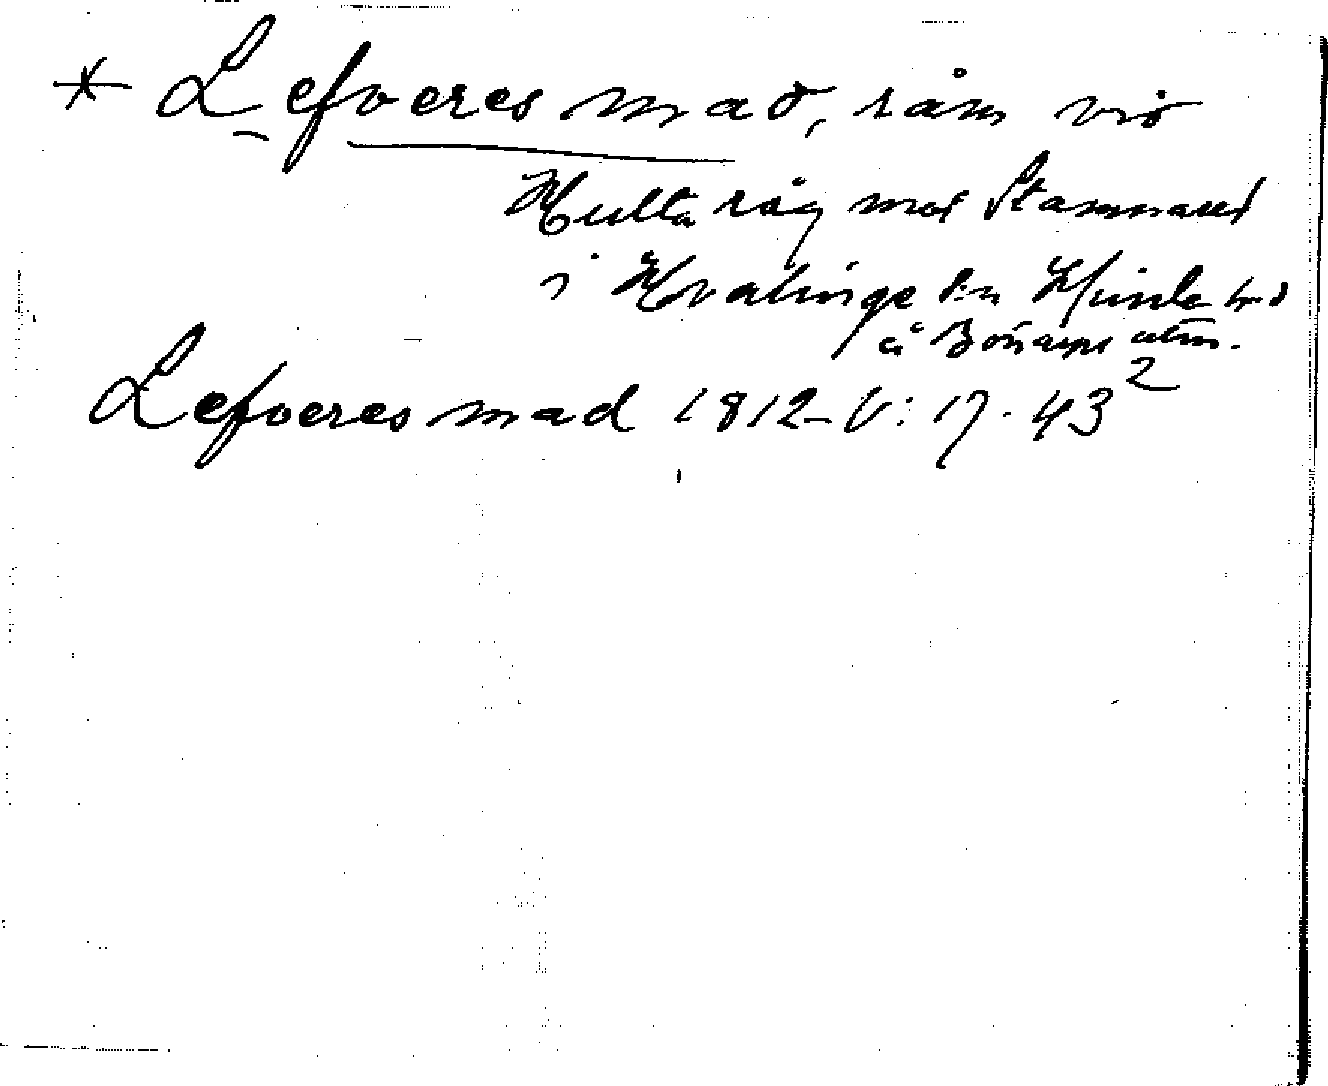 * Lefveres mad, råm vid
Hulta råg mot Stammared
i Kvalinge sn Himle hd
å Bönarps utm.
Lefveres mad 1812 - V: 17. 43²